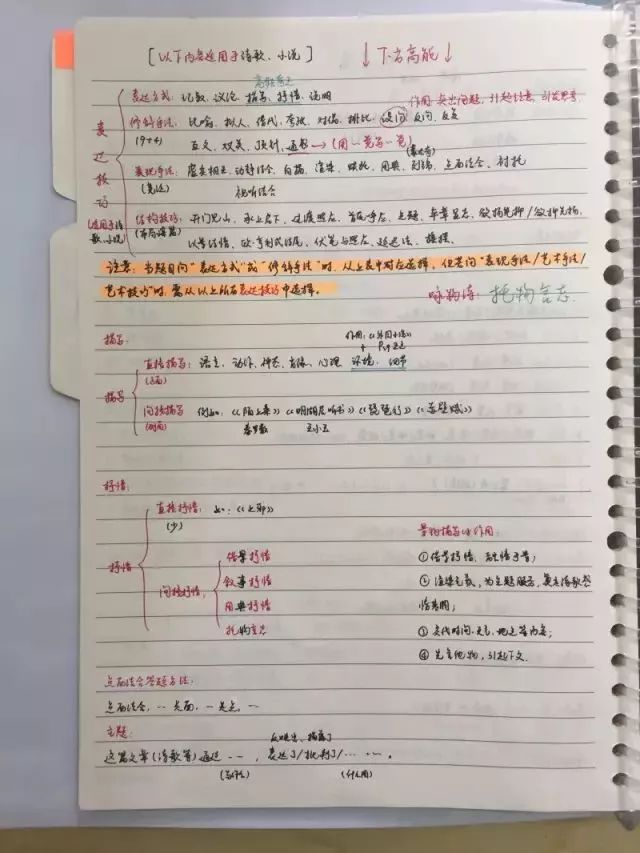 [以下内容适用于诗歌、小说] ↓下方高能↓
高频考点
表达方式：记叙、议论、描写、抒情、说明
作用：突出问题，引起注意，引发思考.
修辞手法：比喻、拟人、借代、夸张、对偶、排比、设问、反问、反复
(9+4)
互文、双关、顶针、通感→(用一觉写一觉)
表达技巧
(适用于诗歌、小说)
表现手法：虚实相生、动静结合、白描、渲染、烘托、用典、点面结合、衬托
视听结合
结构技巧：开门见山、承上启下、过渡照应、首尾呼应、点题、卒章显志、欲扬先抑/欲抑先扬、
以景结情、伏笔与照应、
注意：当题目问"表达方式"或"修辞手法"时，从上表中对应选择，但若问"表现手法/艺术手法/
艺术技巧"时，需从以上所有表达技巧中选择。
咏物诗：托物言志.
描写：
直接描写：语言、动作、神态、肖像、心理、环境、细节
(正面)
描写
间接描写 例如：《陌上桑》《明湖居听书》《琵琶行》《赤壁赋》
(侧面) 秦罗敷 王小玉
抒情：
直接抒情：如：《上邪》
(少)
景物描写的作用：
抒情
间接抒情
借景抒情 ①借景抒情，融情于景；
叙事抒情 ②渲染气氛，为主题服务，奠定诗歌感
用典抒情 情基调；
托物言志 ③交代时间、地点等内容；
④先言他物，引起下文.
点面结合答题方法：
点面结合，…先面，…是点，…
主题：
反映出、揭露了
这篇文章(诗歌等)通过……，表达了/批判了/……